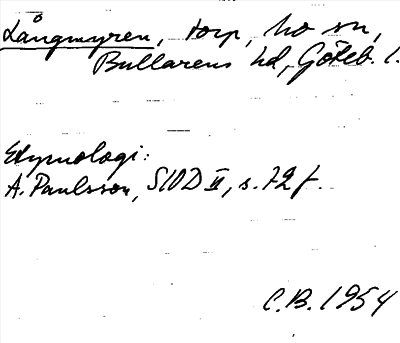 Långmyren, torp, Mo sn,
Bullarens hd, Göteb. l.
Etymologi:
A. Paulsson, SIOD II, s. 72 f.
C.B. 1954